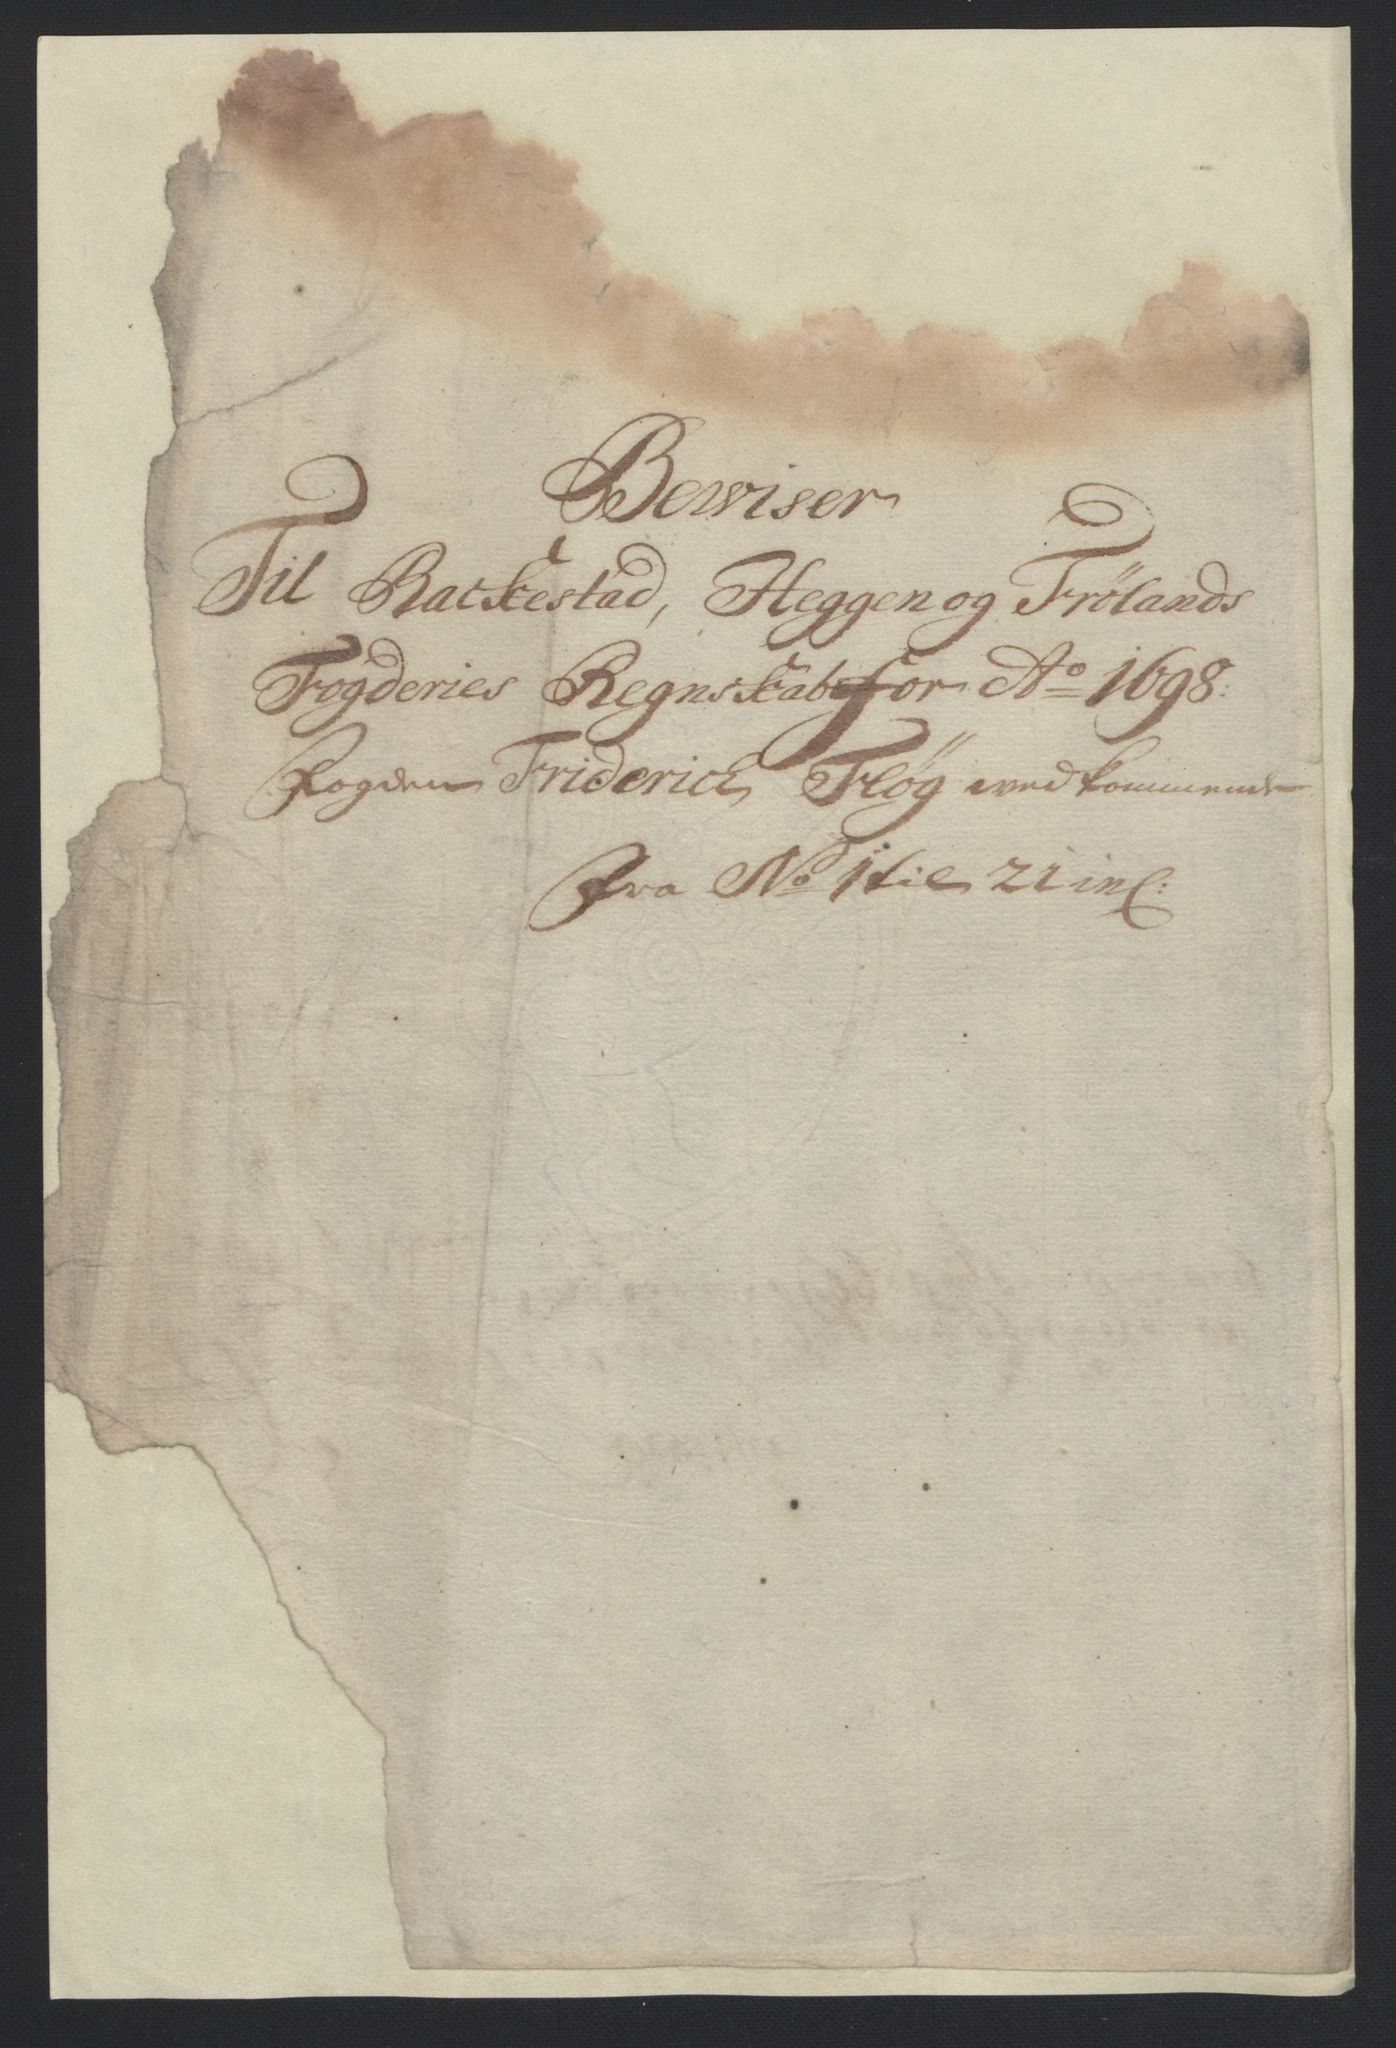 Bewiser
Til Rackestad, Heggen og Frølands
Fogderies Regnskab for Ao 1698:
Fogden Friderich Fløg wedkommende
Fra No 1 til 21 incl: